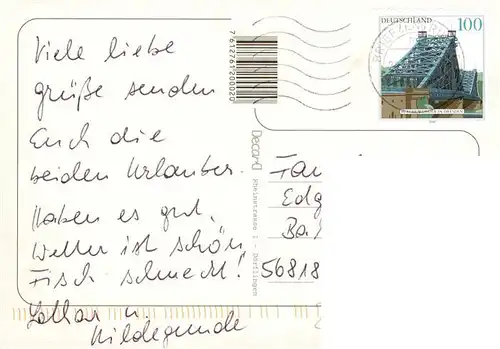 Viele liebe
grüße senden
Euch die
beiden Urlauber.
Haben es gut,
Wetter ist schön,
Fisch schmeckt!
Lothar u
Hildegunde
7612761200020
Decard
DEUTSCHLAND 100
IN DRESDEN
Fam
Edg
Ba
56818